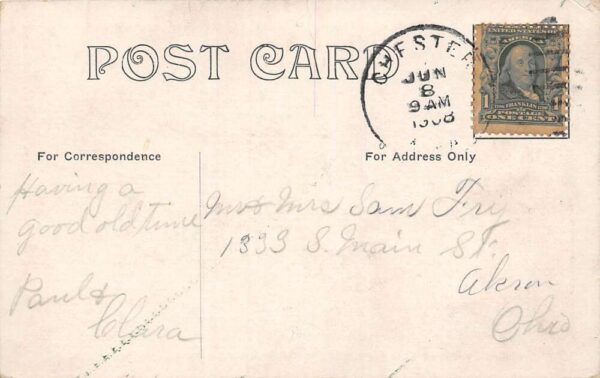 POST CARD
CHESTER
JUN
8
9 AM
1908
UNITED STATES OF
AMERICA
1
FRANKLIN
POSTAGE
ONE CENT
For Correspondence
For Address Only
Having a
good old time
Paul &
Clara
Mr & Mrs Sam Fry
1333 S. Main St.
Akron
Ohio